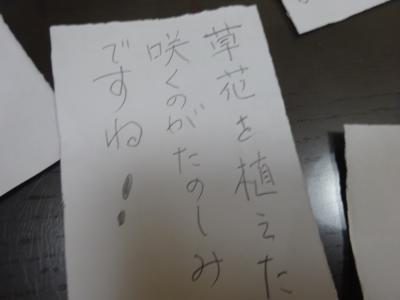 草花を植えた
咲くのがたのしみ
ですね!